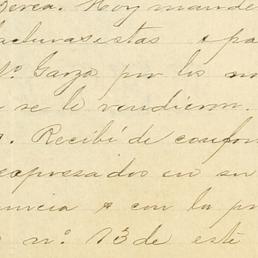 Hoy mande
facturas estas a pa
Garza por los
se le vendieron.
Recibí de confor
expresados en su
y con la pr
nº 13 de este